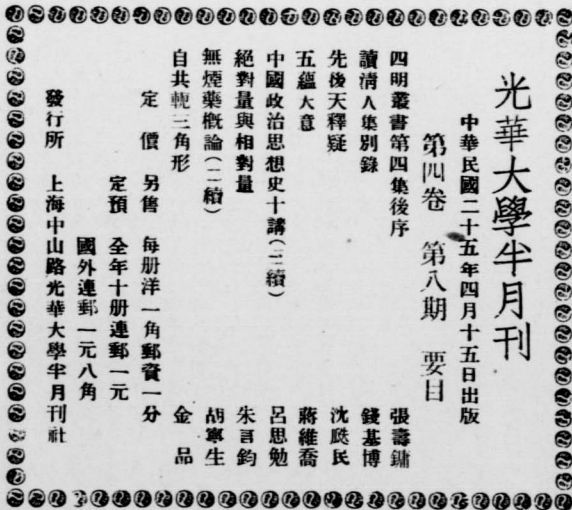 光華大學半月刊
中華民國二十五年四月十五日出版
第四卷 第八期 要目
四明叢書第四集後序 張壽鏞
讀清人集別錄 錢基博
先後天釋疑 沈瓞民
五蘊大意 蔣維喬
中國政治思想史十講(三續) 呂思勉
絕對量與相對量 朱言鈞
無煙藥概論(二續) 胡寧生
自共軛三角形 金品
定價 另售 每册洋一角郵資一分
定預 全年十册連郵一元
國外連郵一元八角
發行所 上海中山路光華大學半月刊社